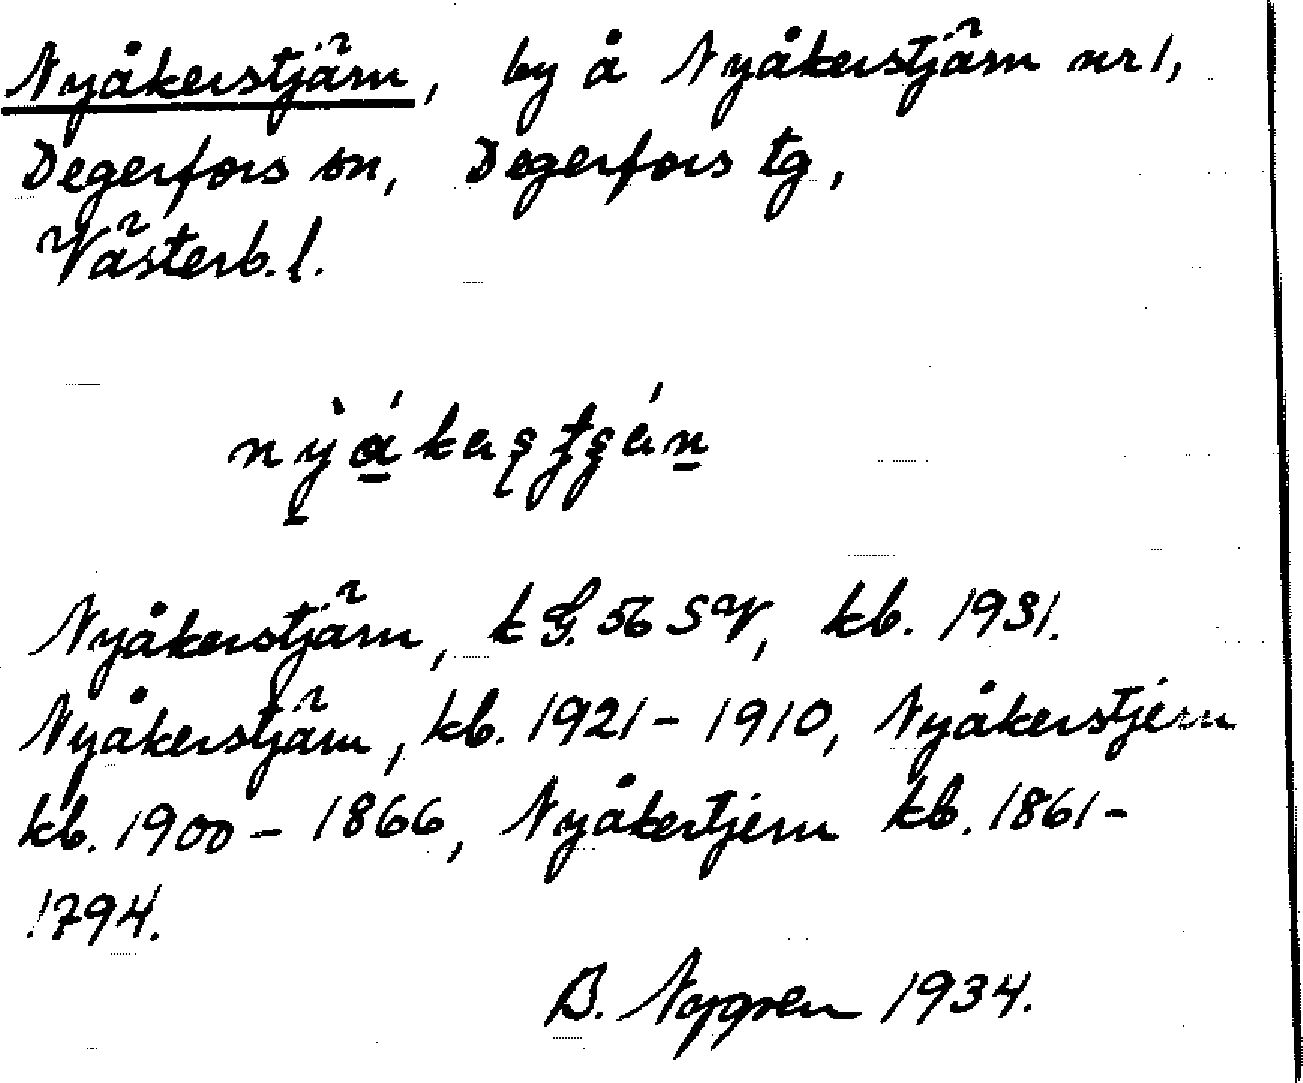 Nyåkerstjärn, by å Nyåkerstjärn nr 1,
Degerfors sn, Degerfors tg,
Västerb. l.
Nyåkerstjärn, k G. 56 SV, kb. 1931.
Nyåkerstjärn, kb. 1921-1910, Nyåkerstjern
kb. 1900-1866, Nyåkertjern kb. 1861-
1794.
B. Nygren 1934.